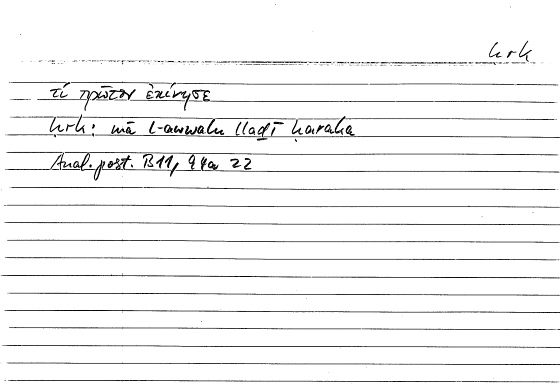 ḥrk
τί πρῶτον ἐκίνησε
ḥrk: mā l-awwalu lladī ḥaraka
Anal. post. B11, 94a 22